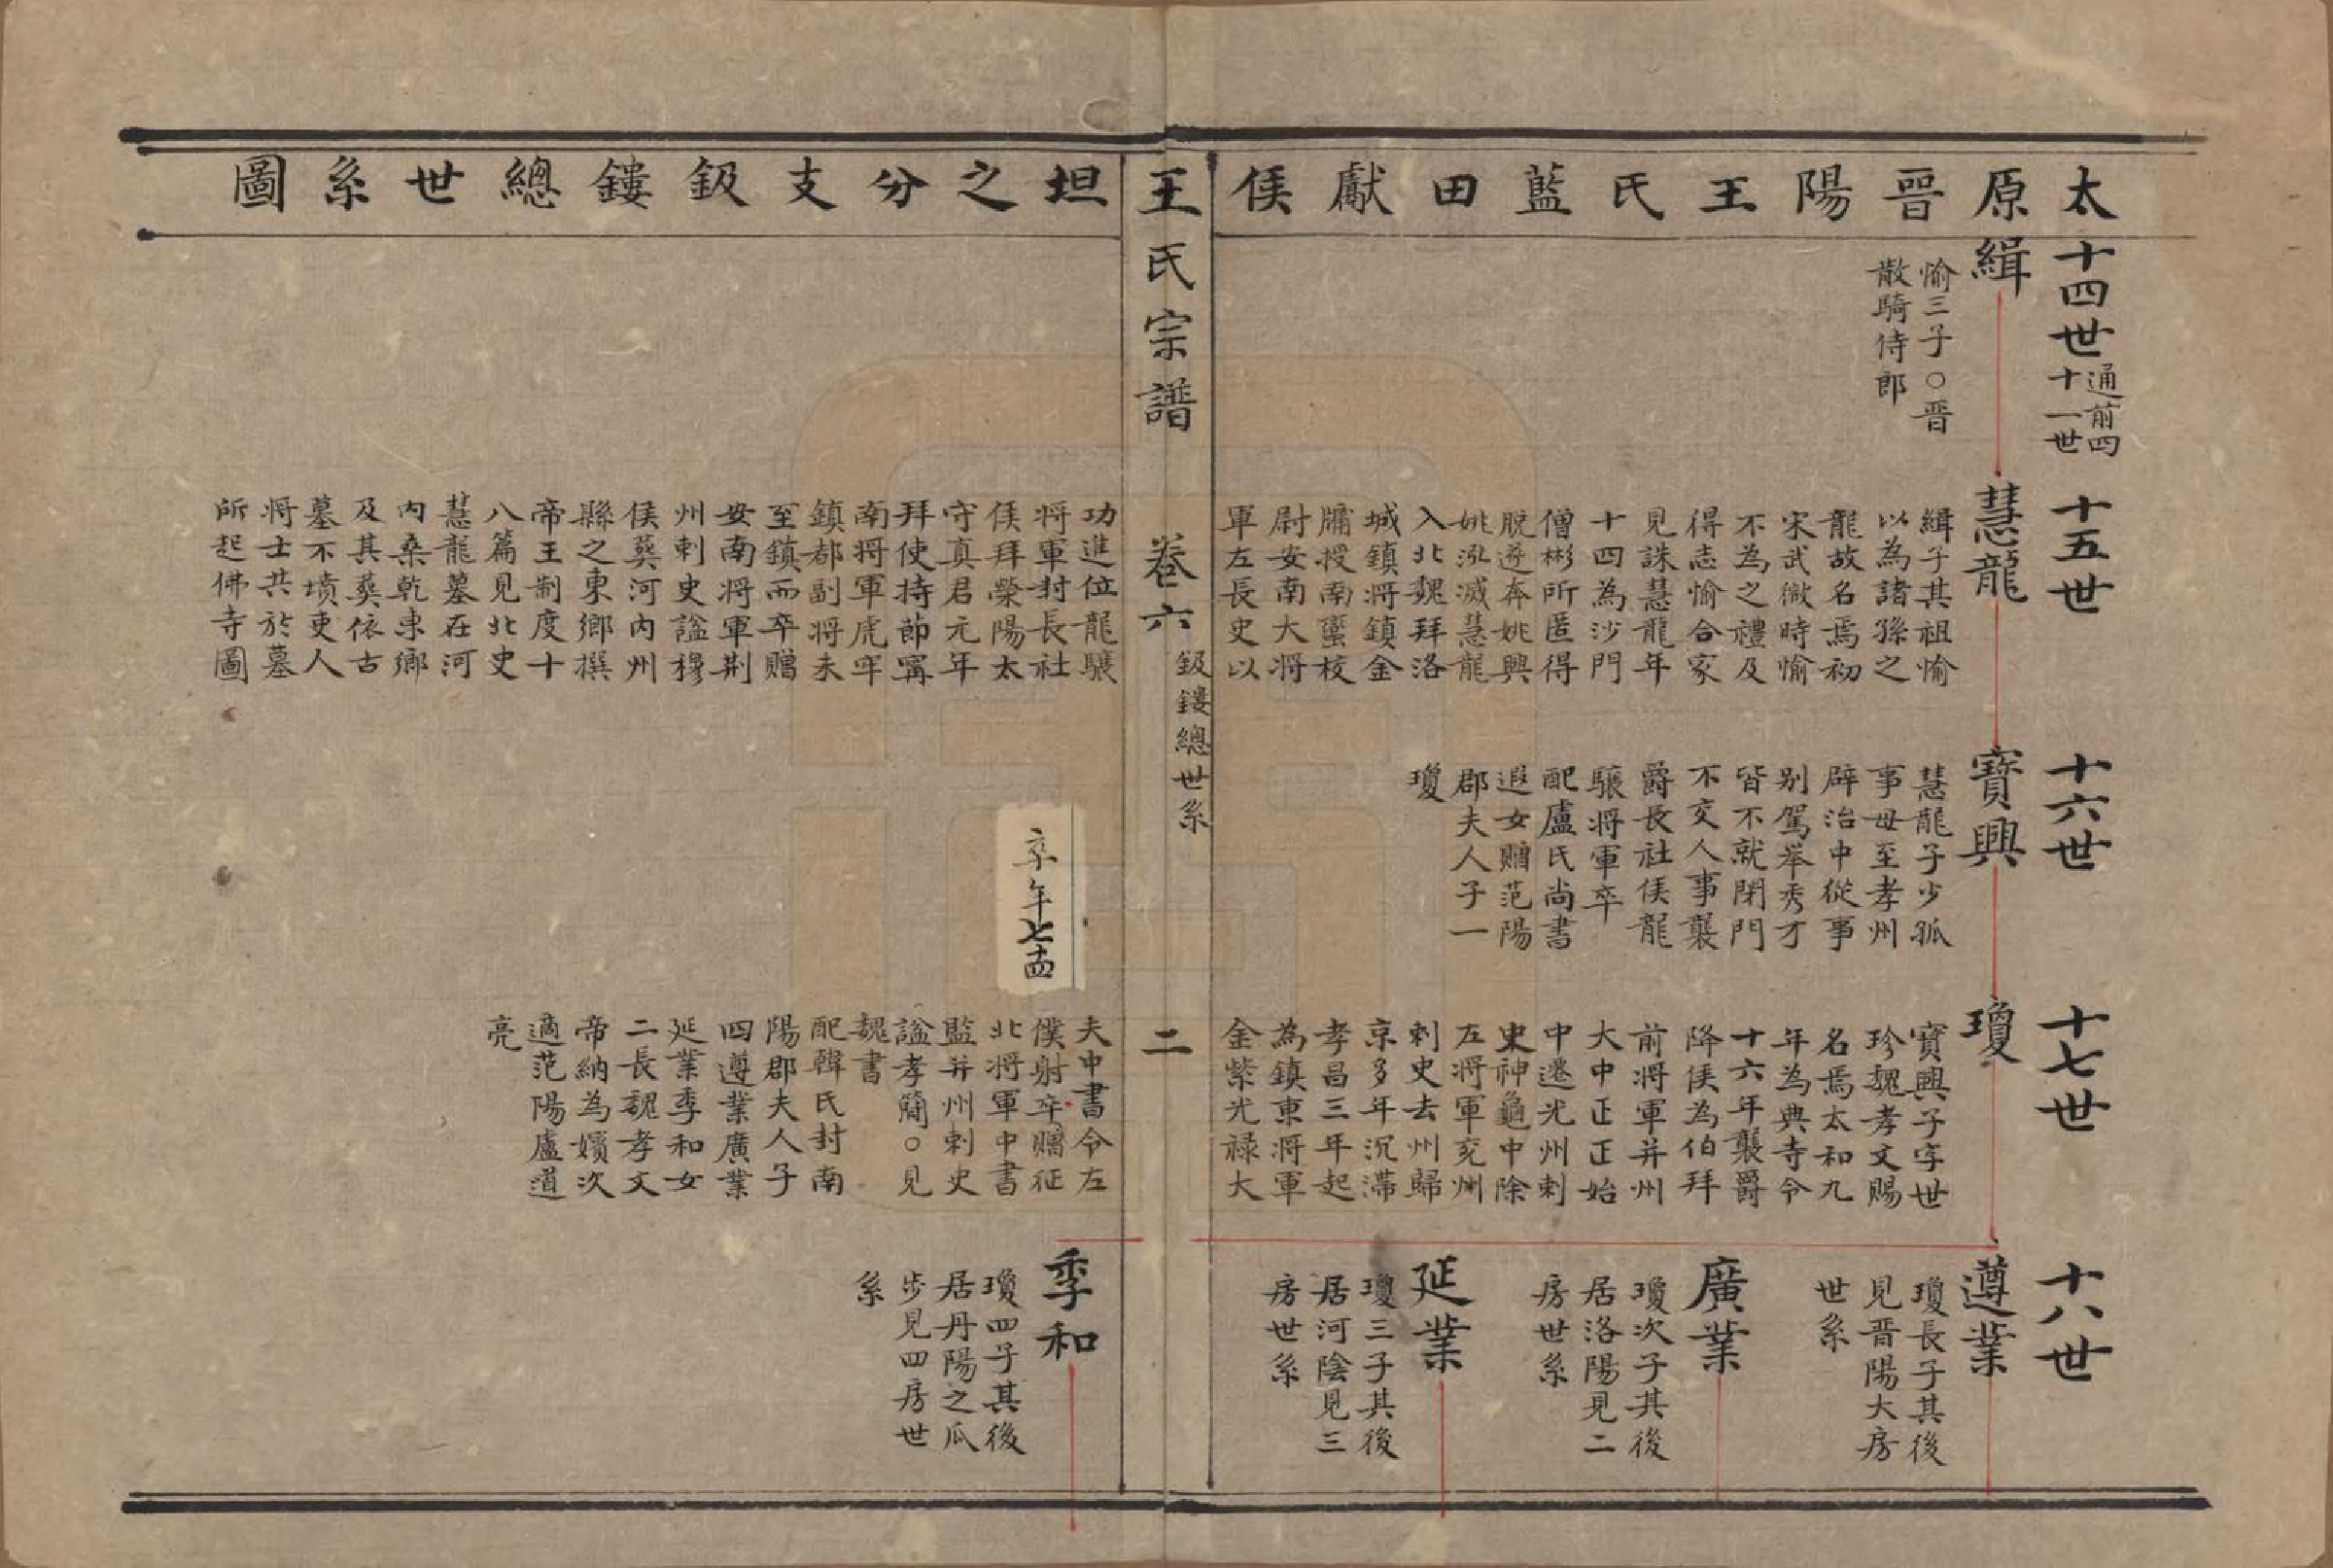 太原晉陽王氏藍田獻侯
坦之分支鈒鏤總世系圖
王氏宗譜
卷六
鈒鏤總世系
二
十四世
通前四
十一世
緝
愉三子○晉
散騎侍郎
十五世
慧龍
緝子其祖愉
以為諸孫之
龍故名焉初
宋武微時愉
不為之禮及
得志愉合家
見誅慧龍年
十四為沙門
僧彬所匿得
脫遂奔姚興
姚泓滅慧龍
入北魏拜洛
城鎮將鎮金
牗授南蠻校
尉安南大將
軍左長史以
功進位龍驤
將軍封長社
侯拜滎陽太
守真君元年
拜使持節寧
南將軍虎牢
鎮都副將未
至鎮而卒贈
安南將軍荆
州刺史諡穆
侯葬河內州
縣之東鄉撰
帝王制度十
八篇見北史
慧龍墓在河
內桑乾東鄉
及其葬依古
墓不墳吏人
將士共於墓
所起佛寺圖
十六世
寶興
慧龍子少孤
事母至孝州
辟治中從事
别駕舉秀才
皆不就閉門
不交人事襲
爵長社侯龍
驤將軍卒
配盧氏尚書
遐女贈范陽
郡夫人子一
瓊
十七世
瓊
寶興子字世
珍魏孝文賜
名焉太和九
年為典寺令
十六年襲爵
降侯為伯拜
前將軍并州
大中正正始
中遷光州刺
史神龜中除
左將軍兗州
刺史去州歸
京多年沉滯
孝昌三年起
為鎮東將軍
金紫光祿大
夫中書令左
僕射卒贈征
北將軍中書
監并州刺史
諡孝簡○見
魏書
配韓氏封南
陽郡夫人子
四遵業廣業
延業季和女
二長魏孝文
帝納為嬪次
適范陽盧道
亮
卒年七十四
十八世
遵業
瓊長子其後
見晋陽大房
世系
廣業
瓊次子其後
居洛陽見二
房世系
延業
瓊三子其後
居河陰見三
房世系
季和
瓊四子其後
居丹陽之瓜
步見四房世
系